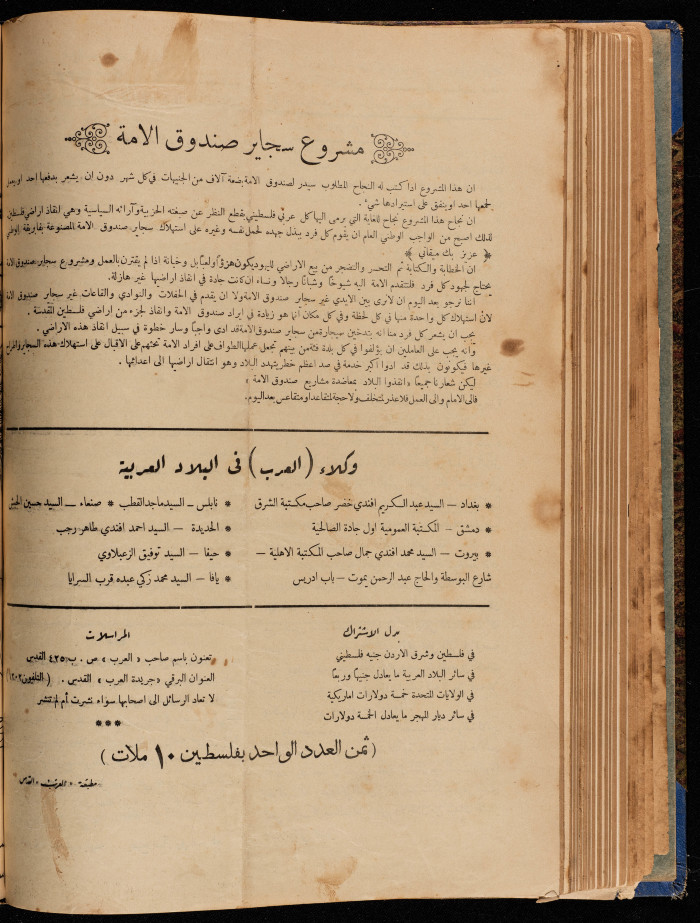 مشروع سجاير صندوق الامة
ان هذا المشروع اذا كتب له النجاح المطلوب سيدر لصندوق الامة بضعة آلاف من الجنيهات في كل شهر دون ان يشعر بدفعها احد او يعمل
لجمعها احد او ينفق على استيرادها شيء .
ان نجاح هذا المشروع نجاح للغاية التي يرمى اليها كل عربي فلسطيني بقطع النظر عن صبغته الحزبية وآرائه السياسية وهي انقاذ اراضي فلسطين
لذلك اصبح من الواجب الوطني العام ان يقوم كل فرد ببذل جهده لحمل نفسه وغيره على استهلاك سجاير صندوق الامة المصنوعة بفابريقة الوطني
﴿ عزيز بك ميقاتي ﴾
ان الخطابة والكتابة ثم التحسر والتضجر من بيع الاراضي لليهود يكون هزؤا ولعبا بل وخيانة اذا لم يقترن بالعمل ومشروع سجاير صندوق الامة
يحتاج لجهود كل فرد فلتتقدم الامة اليه شيوخا وشبانا رجالا ونساء ان كانت جادة في انقاذ اراضيها غير هازلة .
اننا نرجو بعد اليوم ان لا نرى بين الايدي غير سجاير صندوق الامة ولا ان يقدم في الحفلات والنوادي والقاعات غير سجاير صندوق الامة
لان استهلاك كل واحدة منها في كل لحظة وفي كل مكان انما هو زيادة في ايراد صندوق الامة وانقاذ لجزء من اراضي فلسطين المقدسة .
يجب ان يشعر كل فرد منا انه بتدخين سيجارة من سجاير صندوق الامة قد ادى واجبا وسار خطوة في سبيل انقاذ هذه الاراضي .
وانه يجب على العاملين ان يؤلفوا في كل بلدة فئة من بينهم تجعل عملها الطواف على افراد الامة تحثهم على الاقبال على استهلاك هذه السجاير
غيرها فيكونون بذلك قد ادوا اكبر خدمة في صد اعظم خطر يتهدد البلاد وهو انتقال اراضيها الى اعدائها .
ليكن شعارنا جميعا « انقذوا البلاد بمعاضدة مشاريع صندوق الامة »
فالى الامام والى العمل فلا عذر لمتخلف ولا حجة لمتقاعد او متقاعس بعد اليوم .
وكلاء (العرب) في البلاد العربية
* بغداد – السيد عبد الكريم افندي خضر صاحب مكتبة الشرق
* دمشق – المكتبة العمومية اول جادة الصالحية
* بيروت – السيد محمد افندي جمال صاحب المكتبة الاهلية –
شارع البوسطة والحاج عبد الرحمن يموت – باب ادريس
* نابلس – السيد ماجد القطب * صنعاء – السيد حسين
* الحديدة – السيد احمد افندي طاهر رجب
* حيفا – السيد توفيق الزعبلاوي
* يافا – السيد محمد زكي عبده قرب السرايا
بدل الاشتراك
في فلسطين وشرق الاردن جنيه فلسطيني
في سائر البلاد العربية ما يعادل جنيها وربعا
في الولايات المتحدة خمسة دولارات اميركية
في سائر ديار المهجر ما يعادل الخمسة دولارات
المراسلات
تعنون باسم صاحب « العرب » ص . ب ٤٢٥ القدس
العنوان البرقي « جريدة العرب » القدس . (التلفون ١٢٠٢)
لا تعاد الرسائل الى اصحابها سواء نشرت أم لم تنشر
***
(ثمن العدد الواحد بفلسطين ١٠ ملات)
مطبعة « العرب » القدس